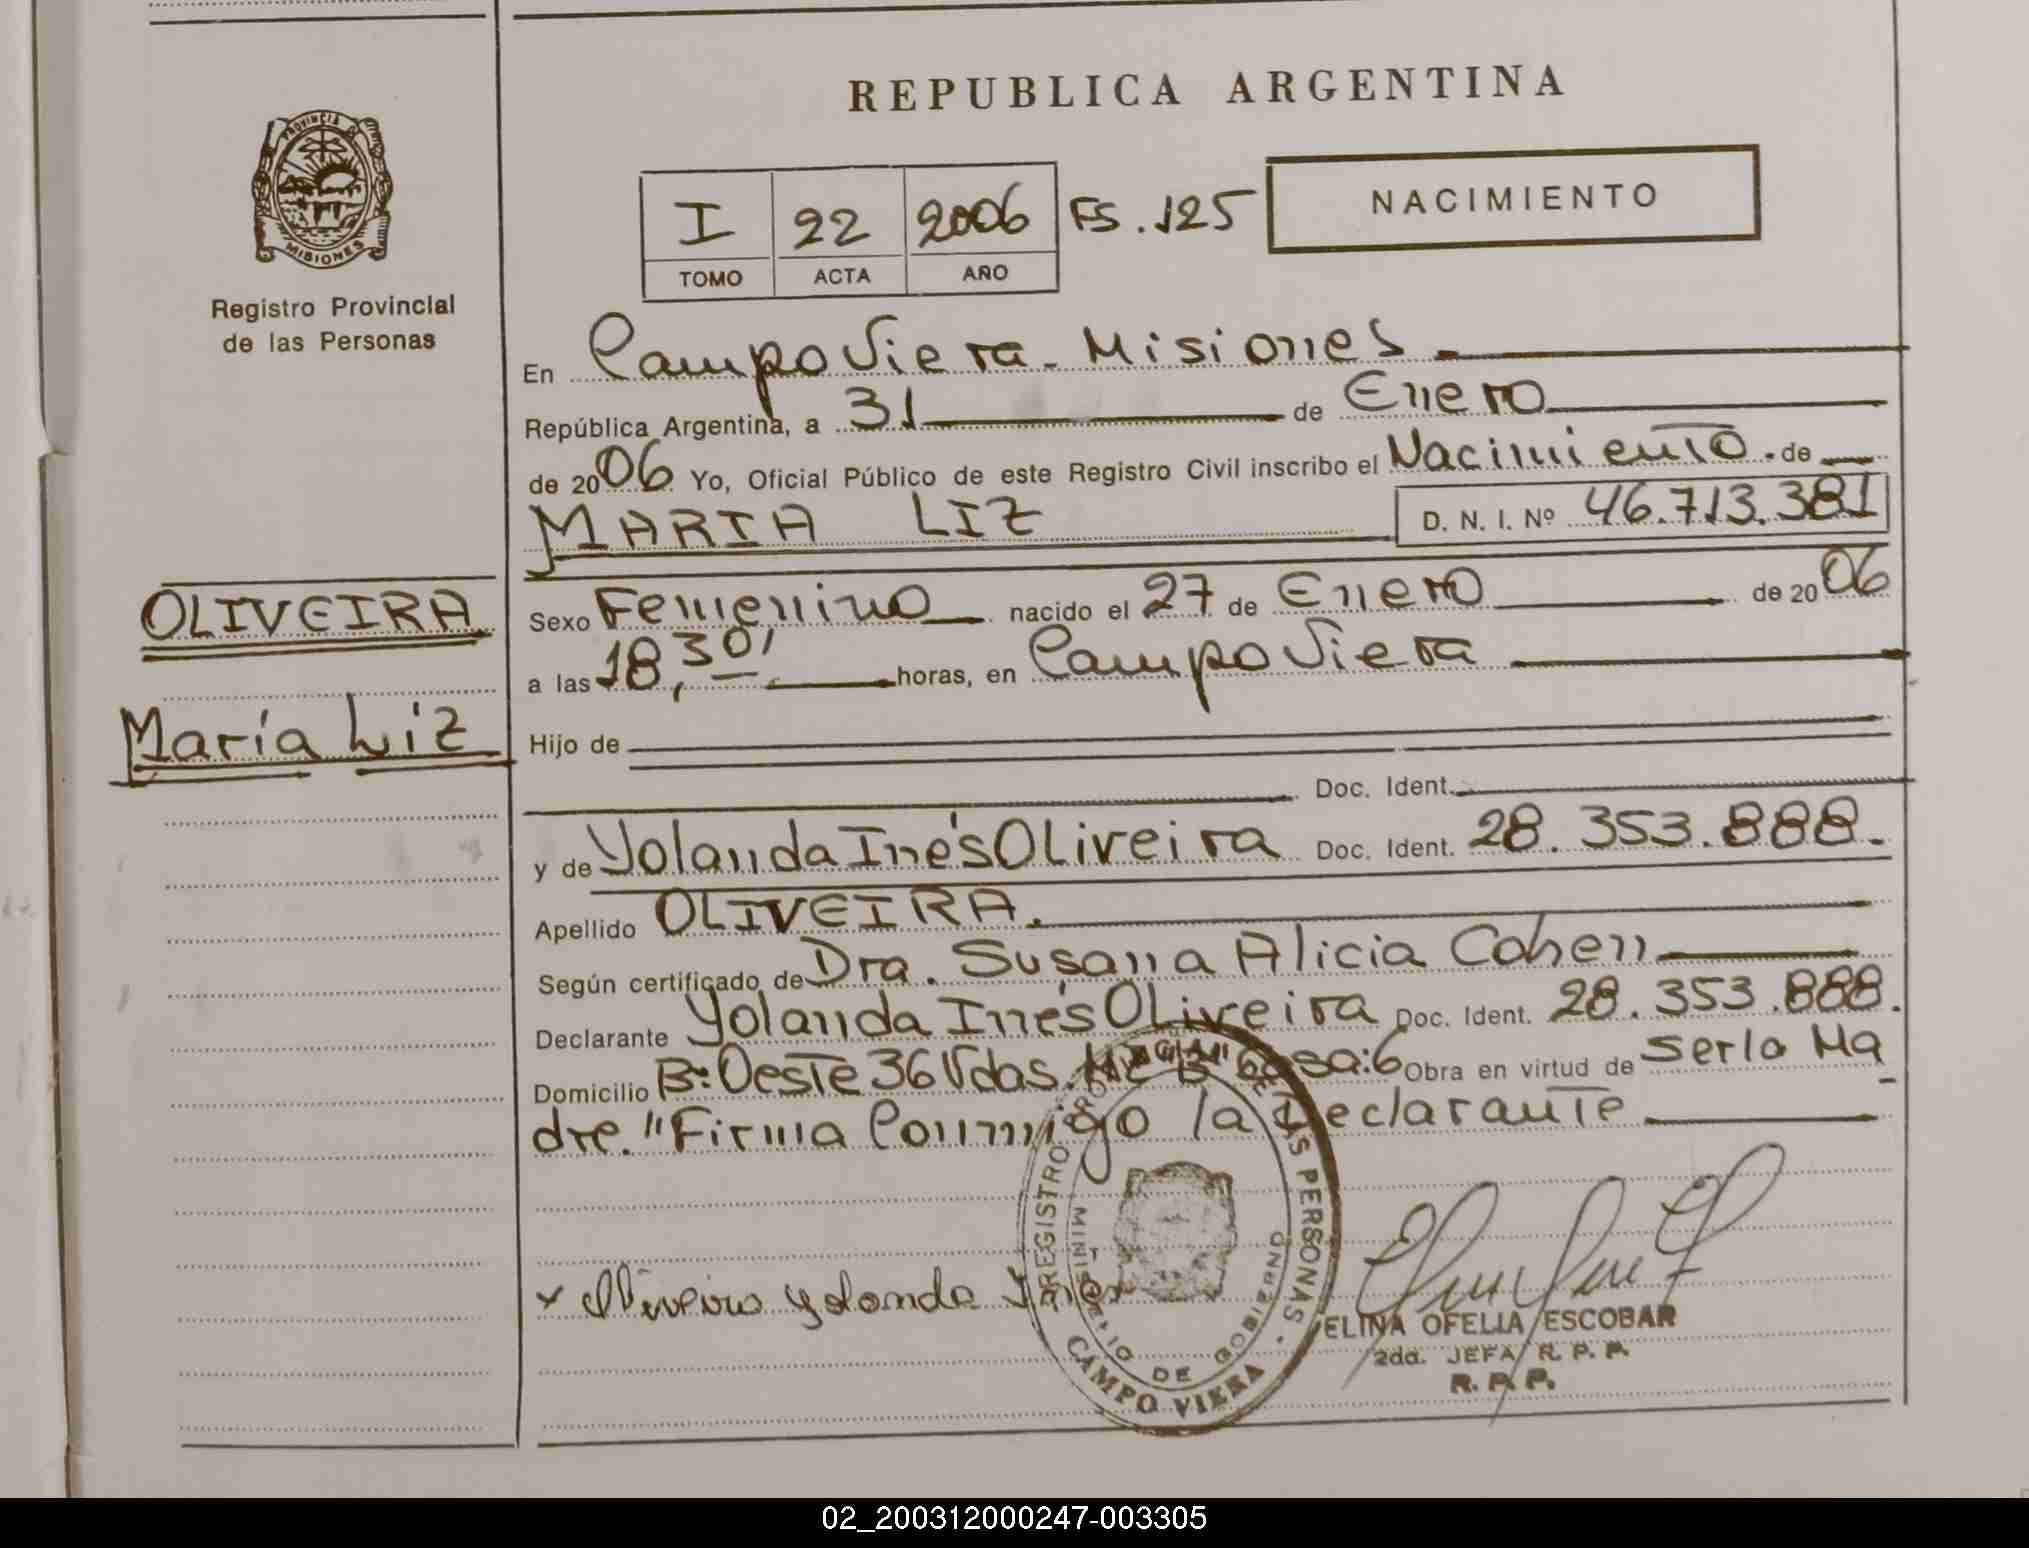 REPUBLICA ARGENTINA
PROVINCIA DE MISIONES
Registro Provincial
de las Personas
I 22 2006 FS. 125
TOMO ACTA AÑO
NACIMIENTO
En Campo Viera - Misiones
República Argentina, a 31 de Enero
de 2006 Yo, Oficial Público de este Registro Civil inscribo el Nacimiento. de
MARIA LIZ D. N. I. Nº 46.713.381
OLIVEIRA
María Liz
Sexo Femenino nacido el 27 de Enero de 2006
a las 18,30' horas, en Campo Viera
Hijo de
Doc. Ident.
y de Yolanda Inés OLiveira Doc. Ident. 28.353.888.
Apellido OLIVEIRA.
Según certificado de Dra. Susana Alicia Cohen
Declarante Yolanda Inés OLiveira Doc. Ident. 28.353.888.
Domicilio Bº: Oeste 36 Vdas. Mz "B" Casa:6 Obra en virtud de ser la Ma
dre. "Firma Conmigo la Declarante
x Oliveira Yolanda Ines
REGISTRO PROV. DE LAS PERSONAS.
MINISTERIO DE GOBIERNO
CAMPO VIERA
ELINA OFELIA ESCOBAR
2da. JEFA R. P. P.
R. P. P.
02_200312000247-003305